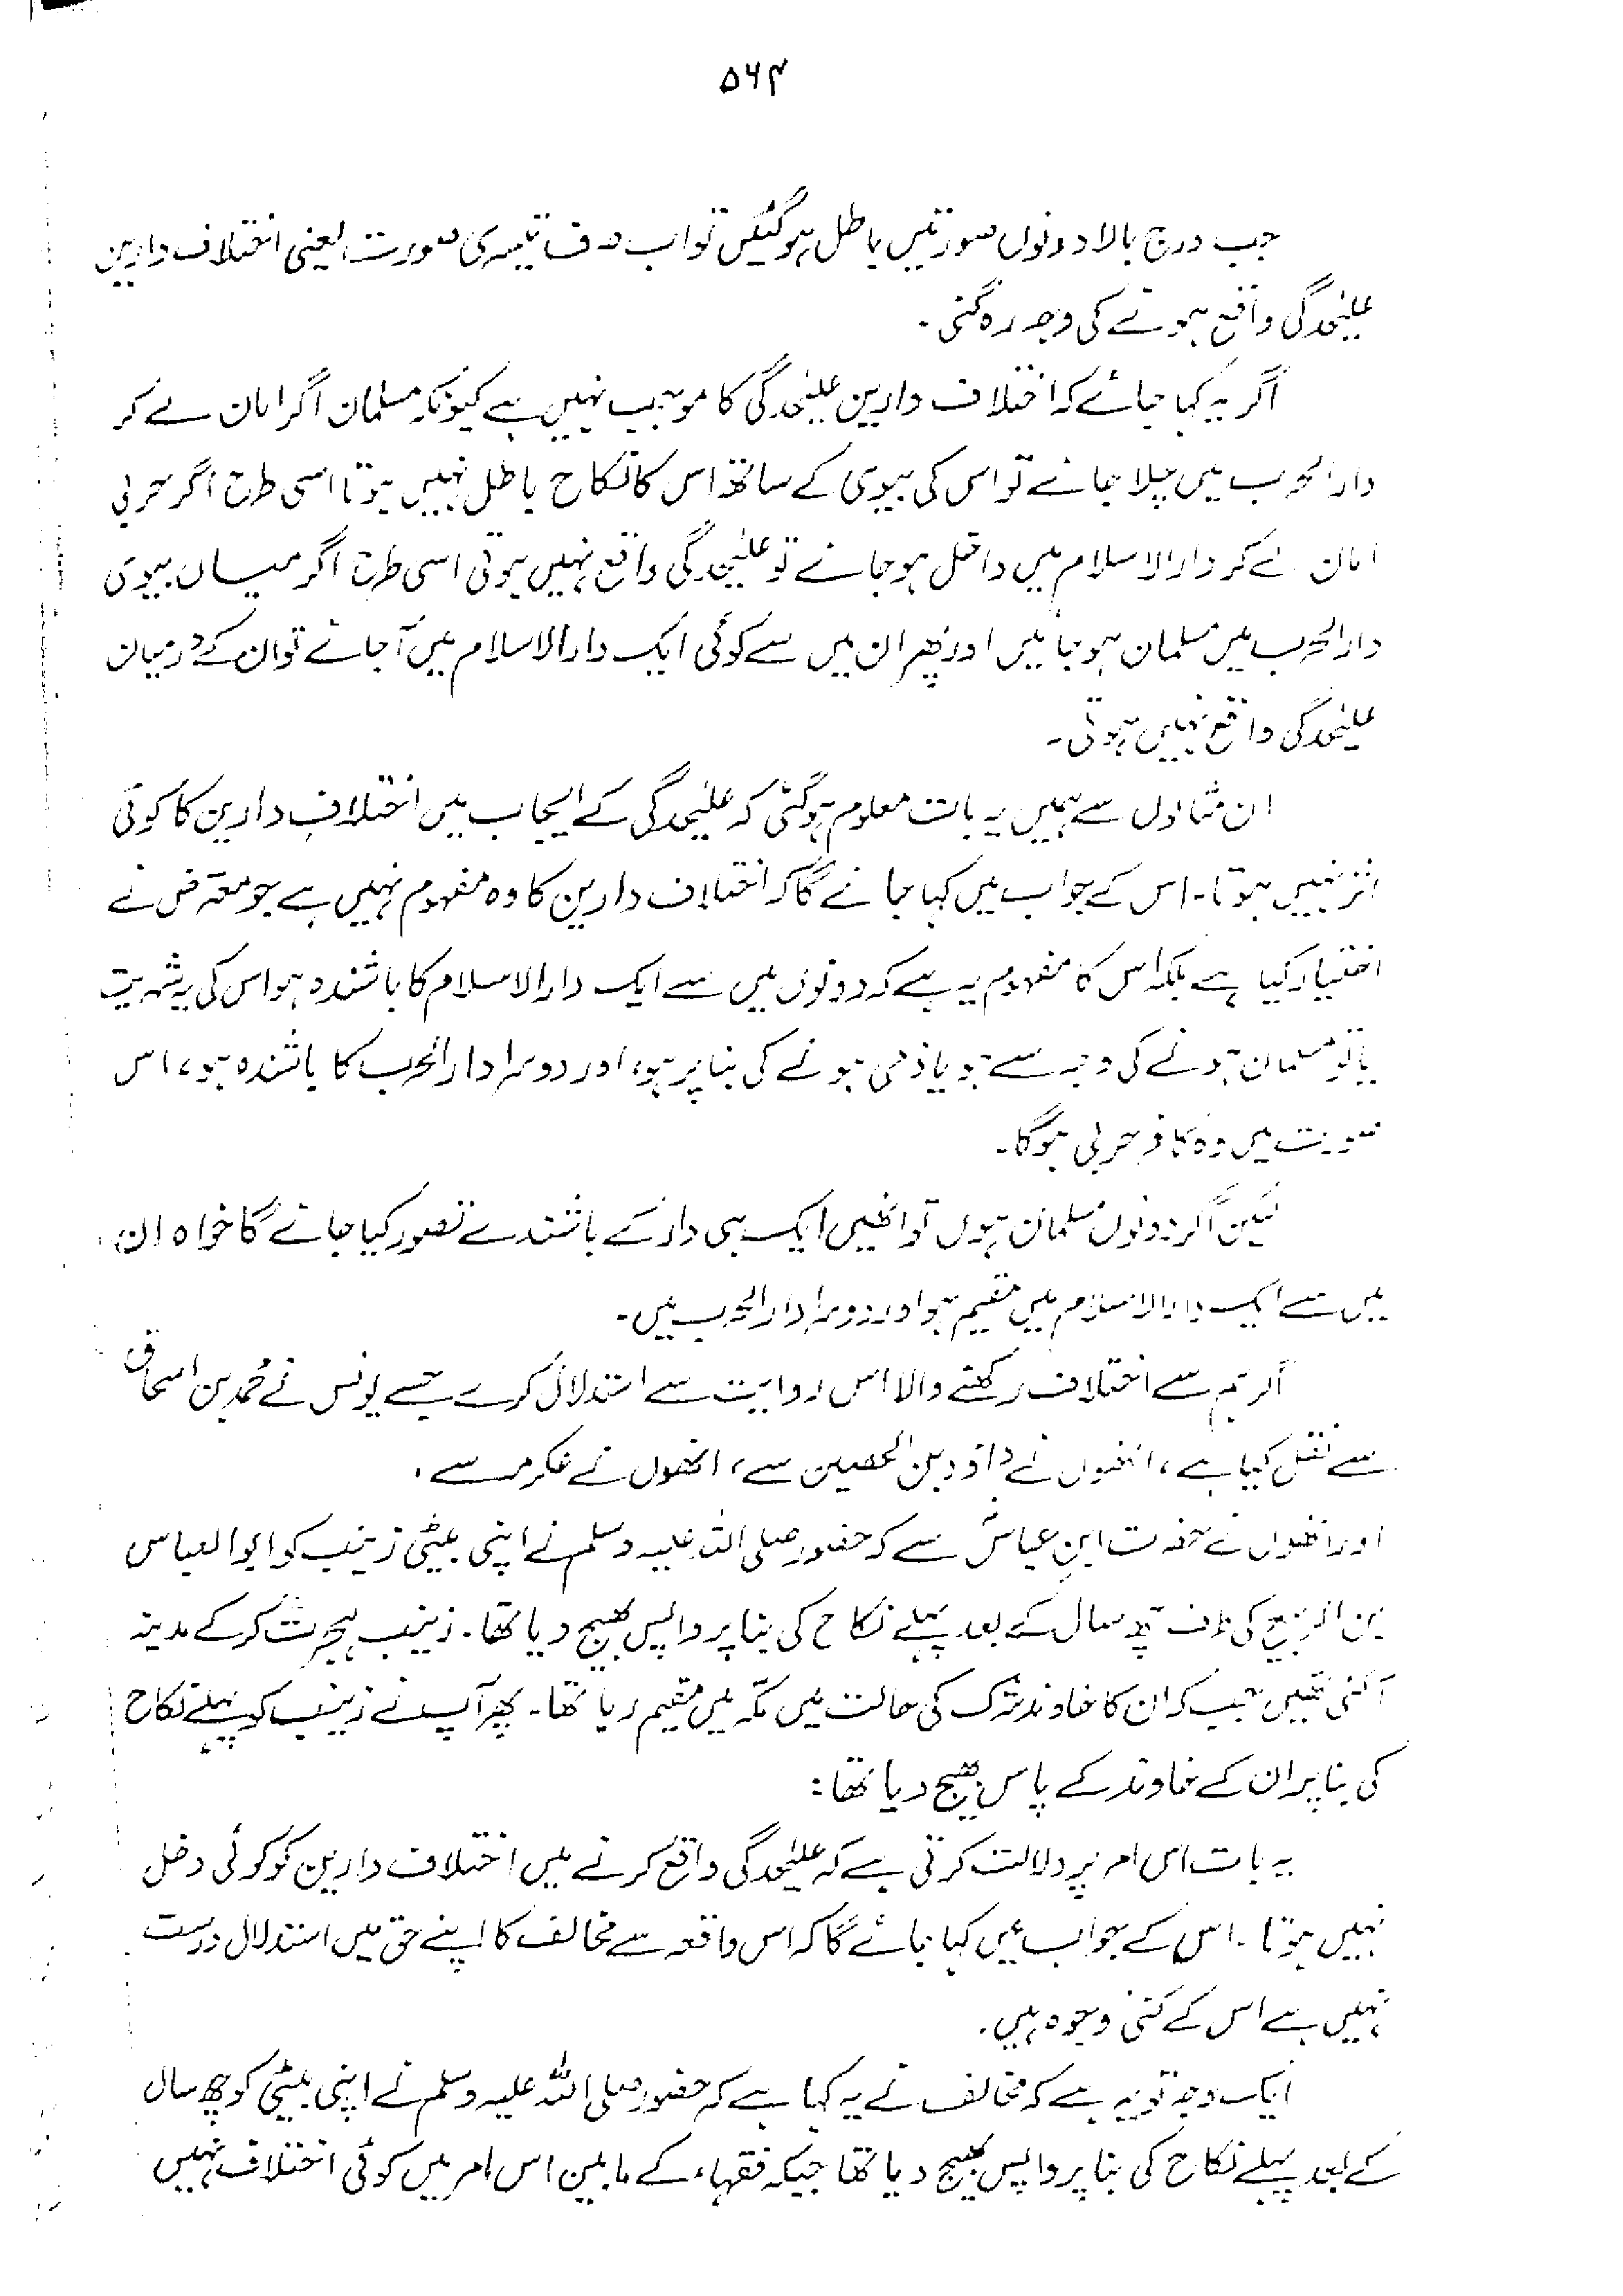 ۵۶۴
جب درج بالا دونوں صورتیں باطل ہوگئیں تو اب صرف تیسری صورت یعنی اختلاف دارین
علیٰحدگی واقع ہونے کی وجہ رہ گئی۔
اگر یہ کہا جائے کہ اختلاف دارین علیٰحدگی کا موجب نہیں ہے کیونکہ مسلمان اگر امان لے کر
دارالحرب میں چلا جائے تو اس کی بیوی کے ساتھ اس کا نکاح باطل نہیں ہوتا اسی طرح اگر حربی
امان لے کر دارالاسلام میں داخل ہو جائے تو علیٰحدگی واقع نہیں ہوتی اسی طرح اگر میاں بیوی
دارالحرب میں مسلمان ہو جائیں اور پھر ان میں سے کوئی ایک دارالاسلام میں آجائے تو ان کے درمیان
علیٰحدگی واقع نہیں ہوتی۔
ان مثالوں سے ہمیں یہ بات معلوم ہوگئی کہ علیٰحدگی کے ایجاب میں اختلافِ دارین کا کوئی
اثر نہیں ہوتا۔ اس کے جواب میں کہا جائے گا کہ اختلاف دارین کا وہ مفہوم نہیں ہے جو معترض نے
اختیار کیا ہے بلکہ اس کا مفہوم یہ ہے کہ دونوں میں سے ایک دارالاسلام کا باشندہ ہو اس کی یہ شہریت
یا تو مسلمان ہونے کی وجہ سے ہو یا ذمی ہونے کی بنا پر ہو، اور دوسرا دارالحرب کا باشندہ ہو، اس
صورت میں وہ کافر حربی ہوگا۔
لیکن اگر دونوں مسلمان ہوں تو انھیں ایک ہی دار کے باشندے تصور کیا جائے گا خواہ ان
میں سے ایک دارالاسلام میں مقیم ہو اور دوسرا دارالحرب میں۔
اگر ہم سے اختلاف رکھنے والا اس روایت سے استدلال کرے جسے یونس نے محمد بن اسحاق
سے نقل کیا ہے، انھوں نے داؤد بن الحصین سے، انھوں نے عکرمہ سے،
اور انھوں نے حضرت ابن عباسؓ سے کہ حضور صلی اللہ علیہ وسلم نے اپنی بیٹی زینب کو ابوالعباس
بن الربیع کی طرف چھ سال کے بعد پہلے نکاح کی بنا پر واپس بھیج دیا تھا۔ زینب ہجرت کر کے مدینہ
آگئی تھیں جب کہ ان کا خاوند شرک کی حالت میں مکّہ میں مقیم رہا تھا۔ پھر آپ نے زینب کو پہلے نکاح
کی بنا پر ان کے خاوند کے پاس بھیج دیا تھا:
یہ بات اس امر پر دلالت کرتی ہے کہ علیٰحدگی واقع کرنے میں اختلاف دارین کو کوئی دخل
نہیں ہوتا۔ اس کے جواب میں کہا جائے گا کہ اس واقعہ سے مخالف کا اپنے حق میں استدلال درست
نہیں ہے اس کے کئی وجوہ ہیں۔
ایک وجہ تو یہ ہے کہ مخالف نے یہ کہا ہے کہ حضور صلی اللہ علیہ وسلم نے اپنی بیٹی کو چھ سال
کے بعد پہلے نکاح کی بنا پر واپس بھیج دیا تھا جبکہ فقہاء کے مابین اس امر میں کوئی اختلاف نہیں